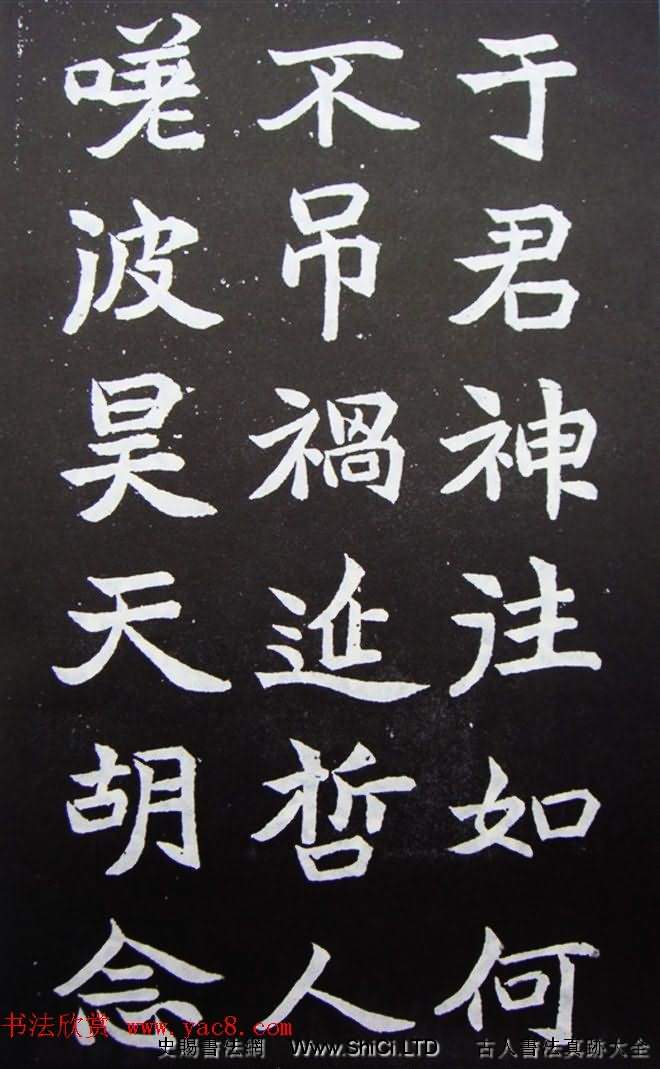 于君神往如何
不吊禍延哲人
嗟彼昊天胡念
书法欣赏 www.yac8.com
史賜書法網 Www.ShiCi.LTD 古人書法真跡大全